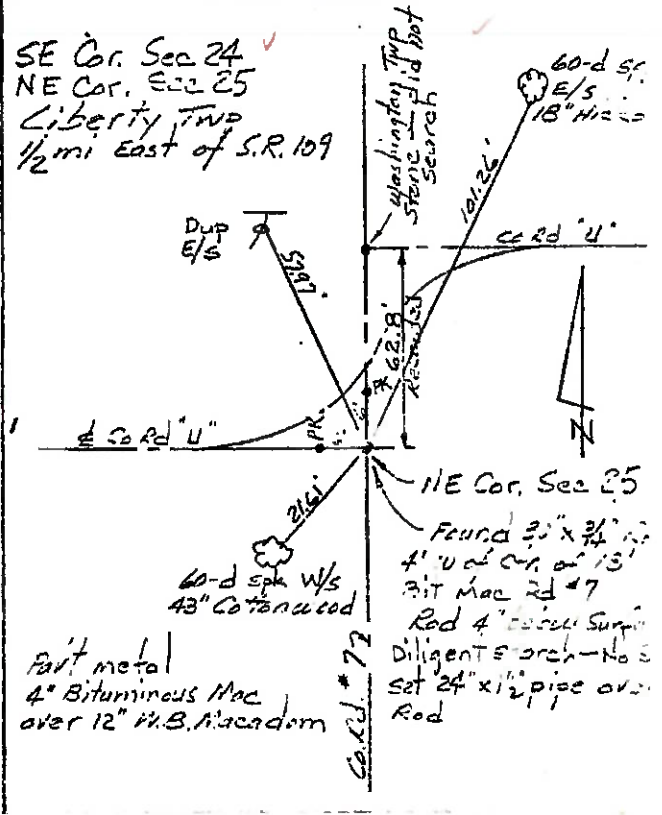 SE Cor. Sec 24
NE Cor. Sec 25
Liberty Twp
1/2 mi East of S.R. 109
Washington Twp
Stone - did not
Search
60-d
E/S
18"
101.26'
Dup
E/S
57.97'
Co Rd "U"
62.8'
Recorded
PK
PK.
5'
5'
℄ Co Rd "U"
N
21.61'
NE Cor. Sec 25
60-d spk W/S
43" Cottonwood
Found
4'
Bit Mac Rd #7
Rod 4" below
Diligent Search - No
set 24" x 1½" pipe over
Rod
Pav't metal
4" Bituminous Mac
over 12" W.B. Macadam
Co. Rd. #7